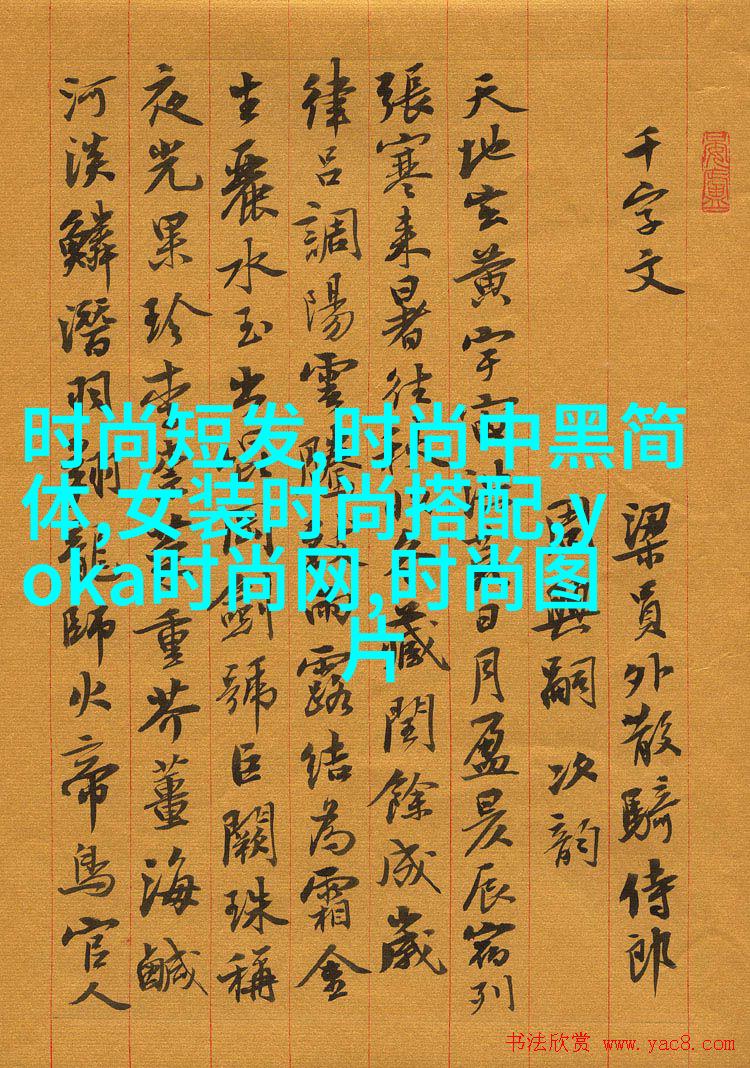 千字文
梁員外散騎侍郎
周興嗣次韵
天地玄黃宇宙洪荒日月盈昃辰宿列
張寒來暑往秋收冬藏閏餘成歲
律呂調陽雲騰致雨露結為霜金
生麗水玉出崑岡劍號巨闕珠稱
夜光果珍李柰菜重芥薑海鹹
河淡鱗潛羽翔龍師火帝鳥官人
时尚短发,时尚中黑简
体,女装时尚搭配,y
oka时尚网,时尚图
片
书法欣赏 www.yac8.com